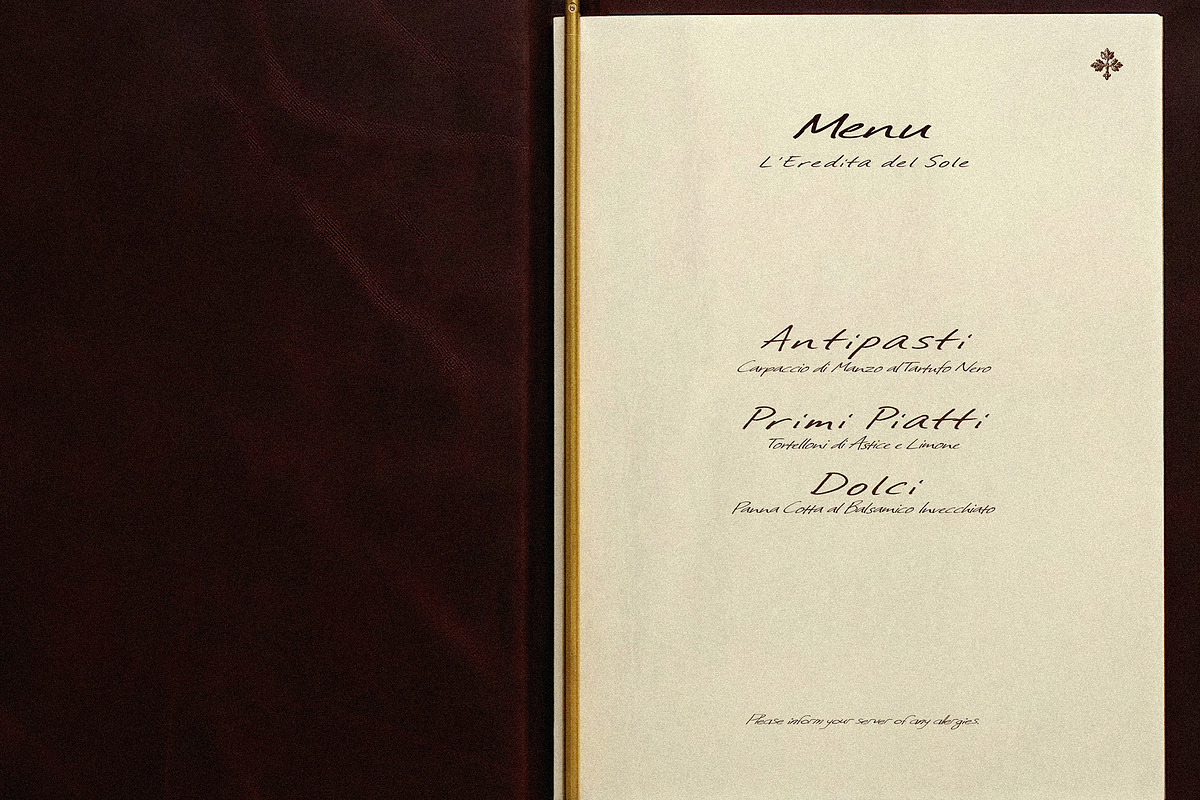 Menu
L'Eredita del Sole
Antipasti
Carpaccio di Manzo al Tartufo Nero
Primi Piatti
Tortelloni di Astice e Limone
Dolci
Panna Cotta al Balsamico Invecchiato
Please inform your server of any alergies.